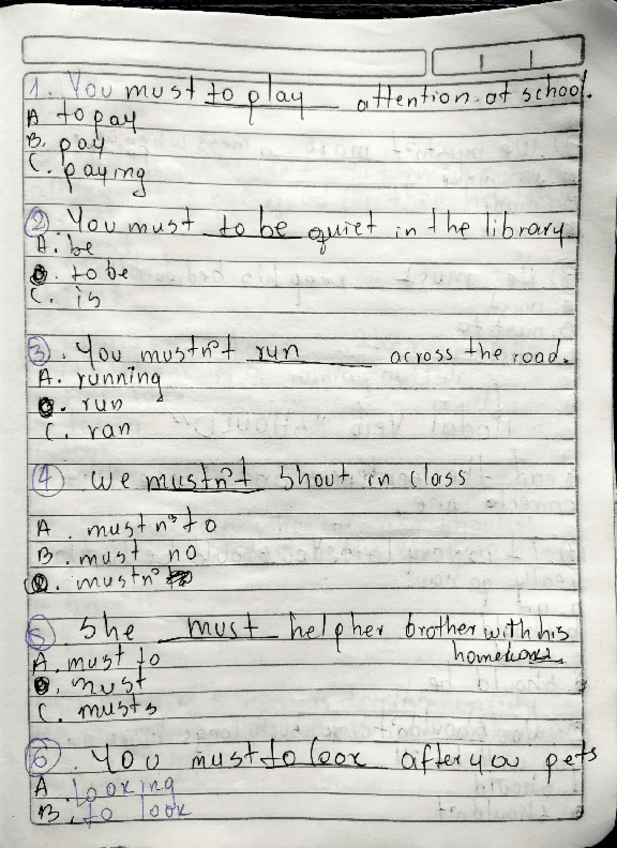 1. You must to play attention at school.
A to pay
B. pay
C. paying
2. You must to be quiet in the library
A. be
B. to be
C. is
3. You mustn't run across the road.
A. running
B. run
C. ran
4 we mustn't shout in class
A. mustn't to
B. must no
C. mustn't
5 She must help her brother with his
homework.
A. must to
B. must
C. musts
6. You must to look after you pets
A looking
B. to look